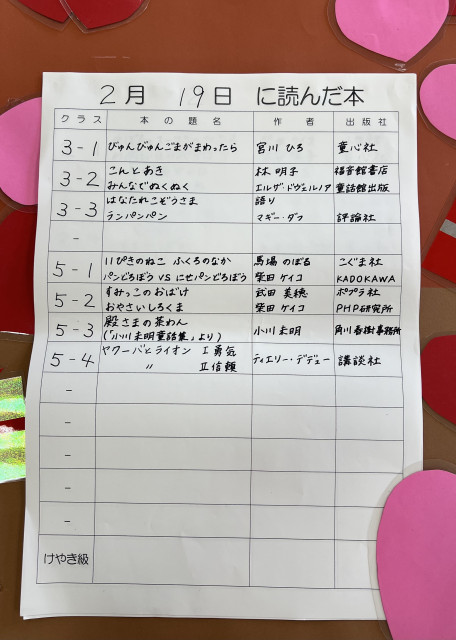 2月 19日 に読んだ本
クラス 本の題名 作者 出版社
3-1 びゅんびゅんごまがまわったら 宮川 ひろ 童心社
3-2 こんとあき 林 明子 福音館書店
みんなでぬくぬく エルザ・ドヴェルノア 童話館出版
3-3 はなたれこぞうさま 語り
ランパンパン マギー・ダフ 評論社
-
5-1 11ぴきのねこ ふくろのなか 馬場 のぼる こぐま社
パンどろぼう VS にせパンどろぼう 柴田 ケイコ KADOKAWA
5-2 すみっこのおばけ 武田 美穂 ポプラ社
おやさいしろくま 柴田 ケイコ PHP研究所
5-3 殿さまの茶わん 小川 未明 角川春樹事務所
(「小川未明童話集」より)
5-4 ヤクーバとライオン Ⅰ 勇気 ティエリー・デデュー 講談社
〃 Ⅱ 信頼
-
-
-
-
けやき級